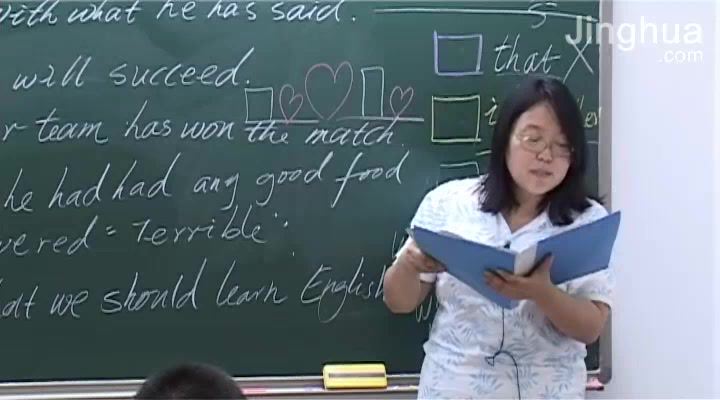 with what he has said.
5
Jinghua
.com
that X
will succeed.
r team has won the match.
he had had any good food
vered = "Terrible".
hat we should learn English